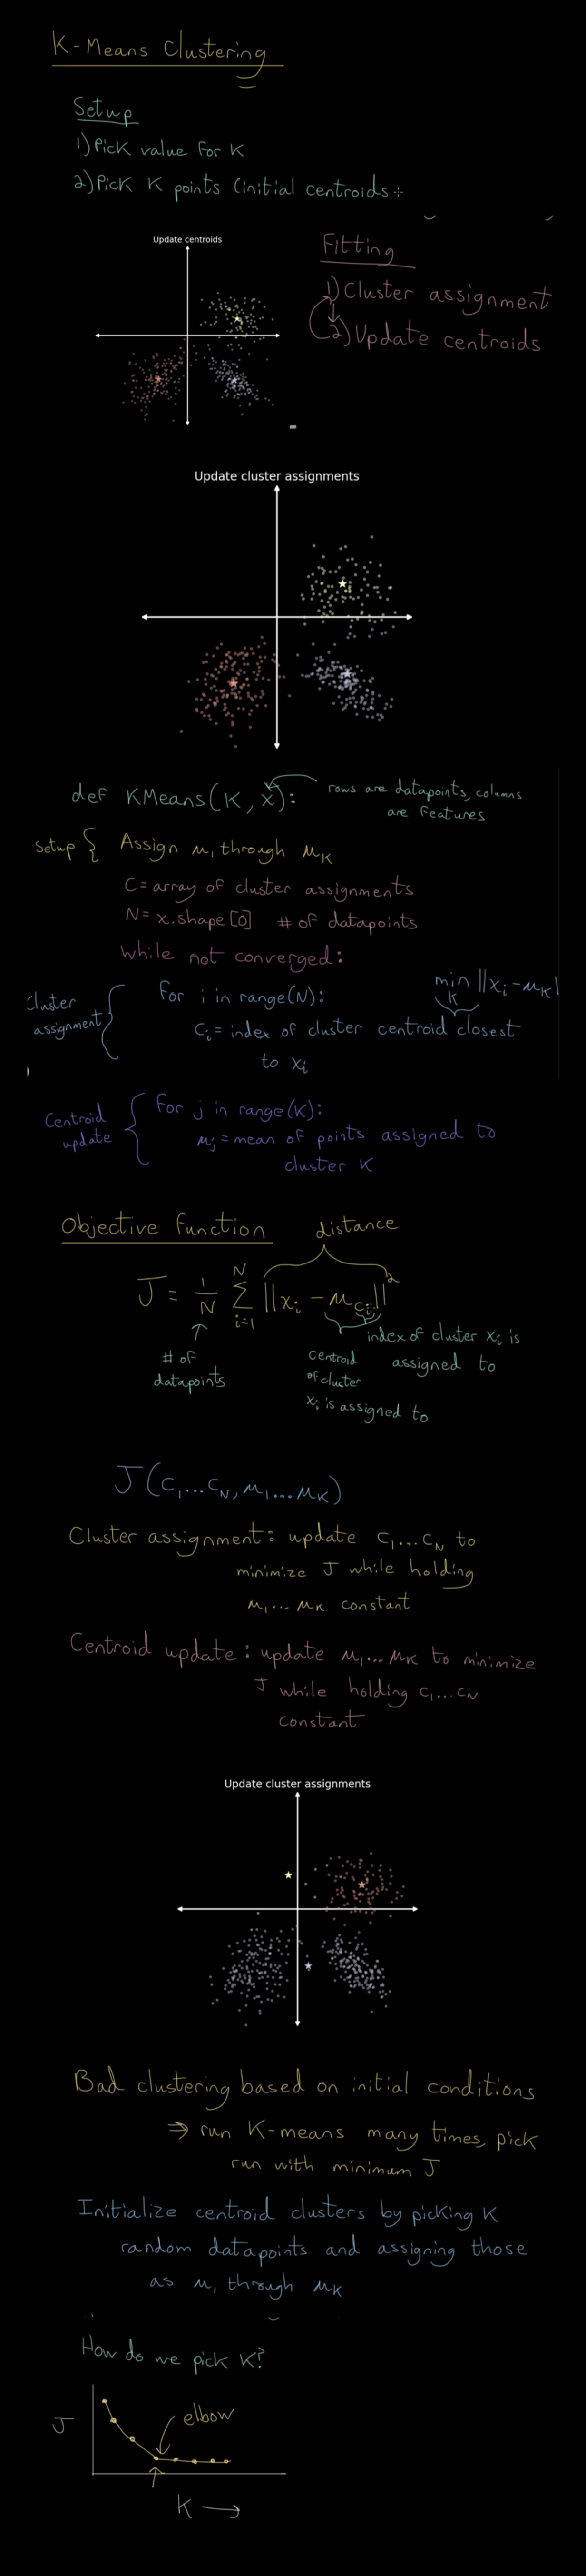 K-Means Clustering
Setup
1) Pick value for K
2) Pick K points (initial centroids
Update centroids
Fitting
1) Cluster assignment
2) Update centroids
Update cluster assignments
def KMeans(K, x):
rows are datapoints, columns
are features
Setup { Assign μ1 through μK
C = array of cluster assignments
N = x.shape[0] # of datapoints
while not converged:
Cluster
assignment
for i in range(N):
min ||xi - μK||
K
Ci = index of cluster centroid closest
to xi
Centroid
update
for j in range(K):
μj = mean of points assigned to
cluster K
Objective function
distance
J = 1/N Σ i=1 N ||xi - μci||²
# of
datapoints
centroid
of cluster
xi is assigned to
index of cluster xi is
assigned to
J(c1...cN, μ1...μK)
Cluster assignment: update c1...cN to
minimize J while holding
μ1...μK constant
Centroid update: update μ1...μK to minimize
J while holding c1...cN
constant
Update cluster assignments
Bad clustering based on initial conditions
⇒ run K-means many times, pick
run with minimum J
Initialize centroid clusters by picking K
random datapoints and assigning those
as μ1 through μK
How do we pick K?
J
elbow
K →